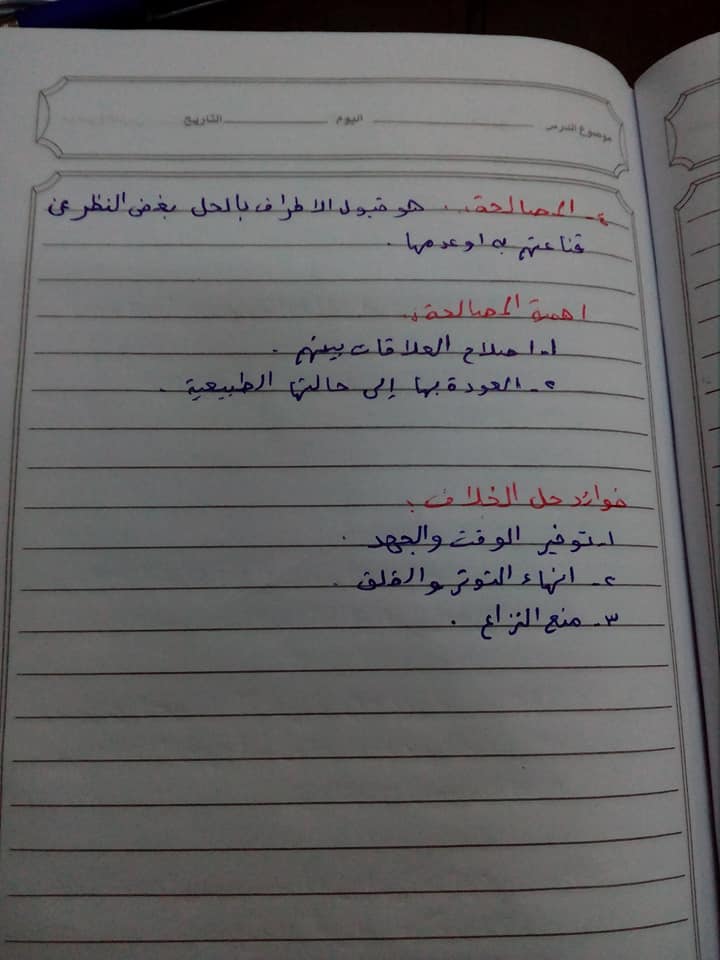 موضوع الدرس اليوم التاريخ
٤- المصالحة:. هو قبول الاطراف بالحل بغض النظر عن
قناعتهم به او عدمها.
اهمية المصالحة:.
١- اصلاح العلاقات بينهم.
٢- العودة بها إلى حالتها الطبيعية.
فوائد حل الخلاف:
١- توفير الوقت والجهد.
٢- انهاء التوتر والقلق.
٣- منع النزاع.